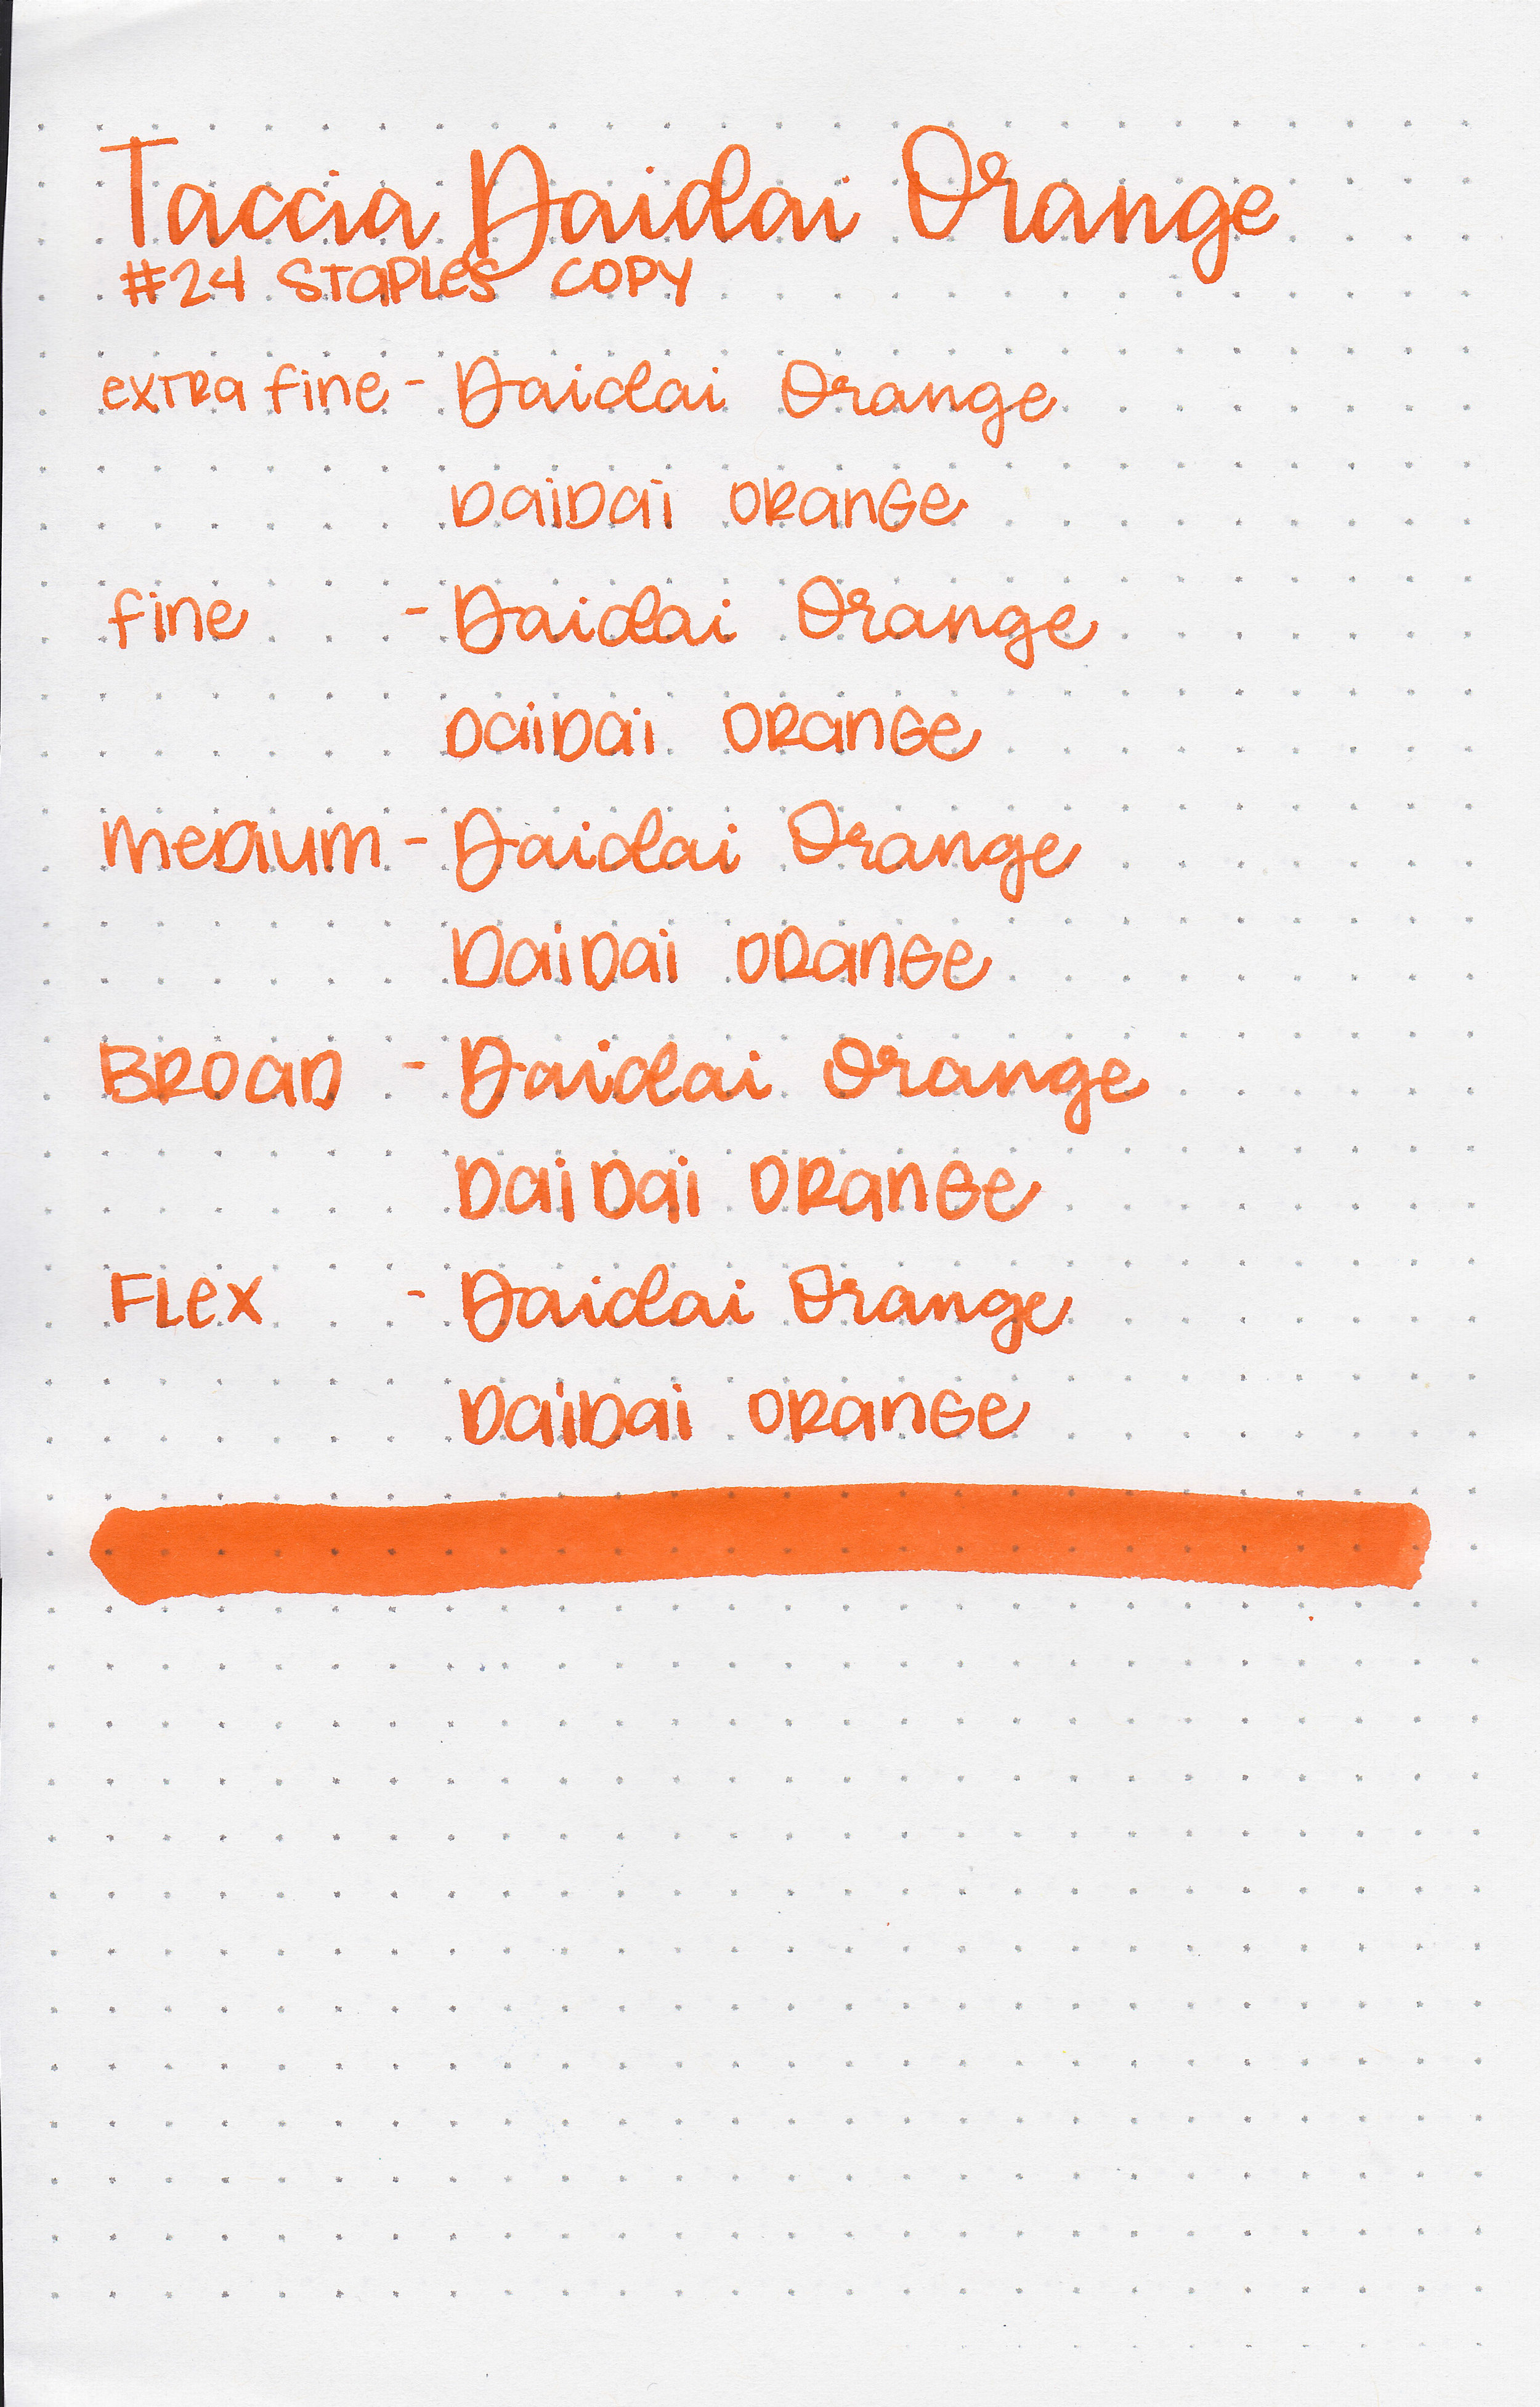 Taccia Daidai Orange
#24 Staples Copy
extra fine - Daidai Orange
Daidai Orange
fine - Daidai Orange
Daidai Orange
Medium - Daidai Orange
Daidai Orange
Broad - Daidai Orange
Daidai Orange
Flex - Daidai Orange
Daidai Orange